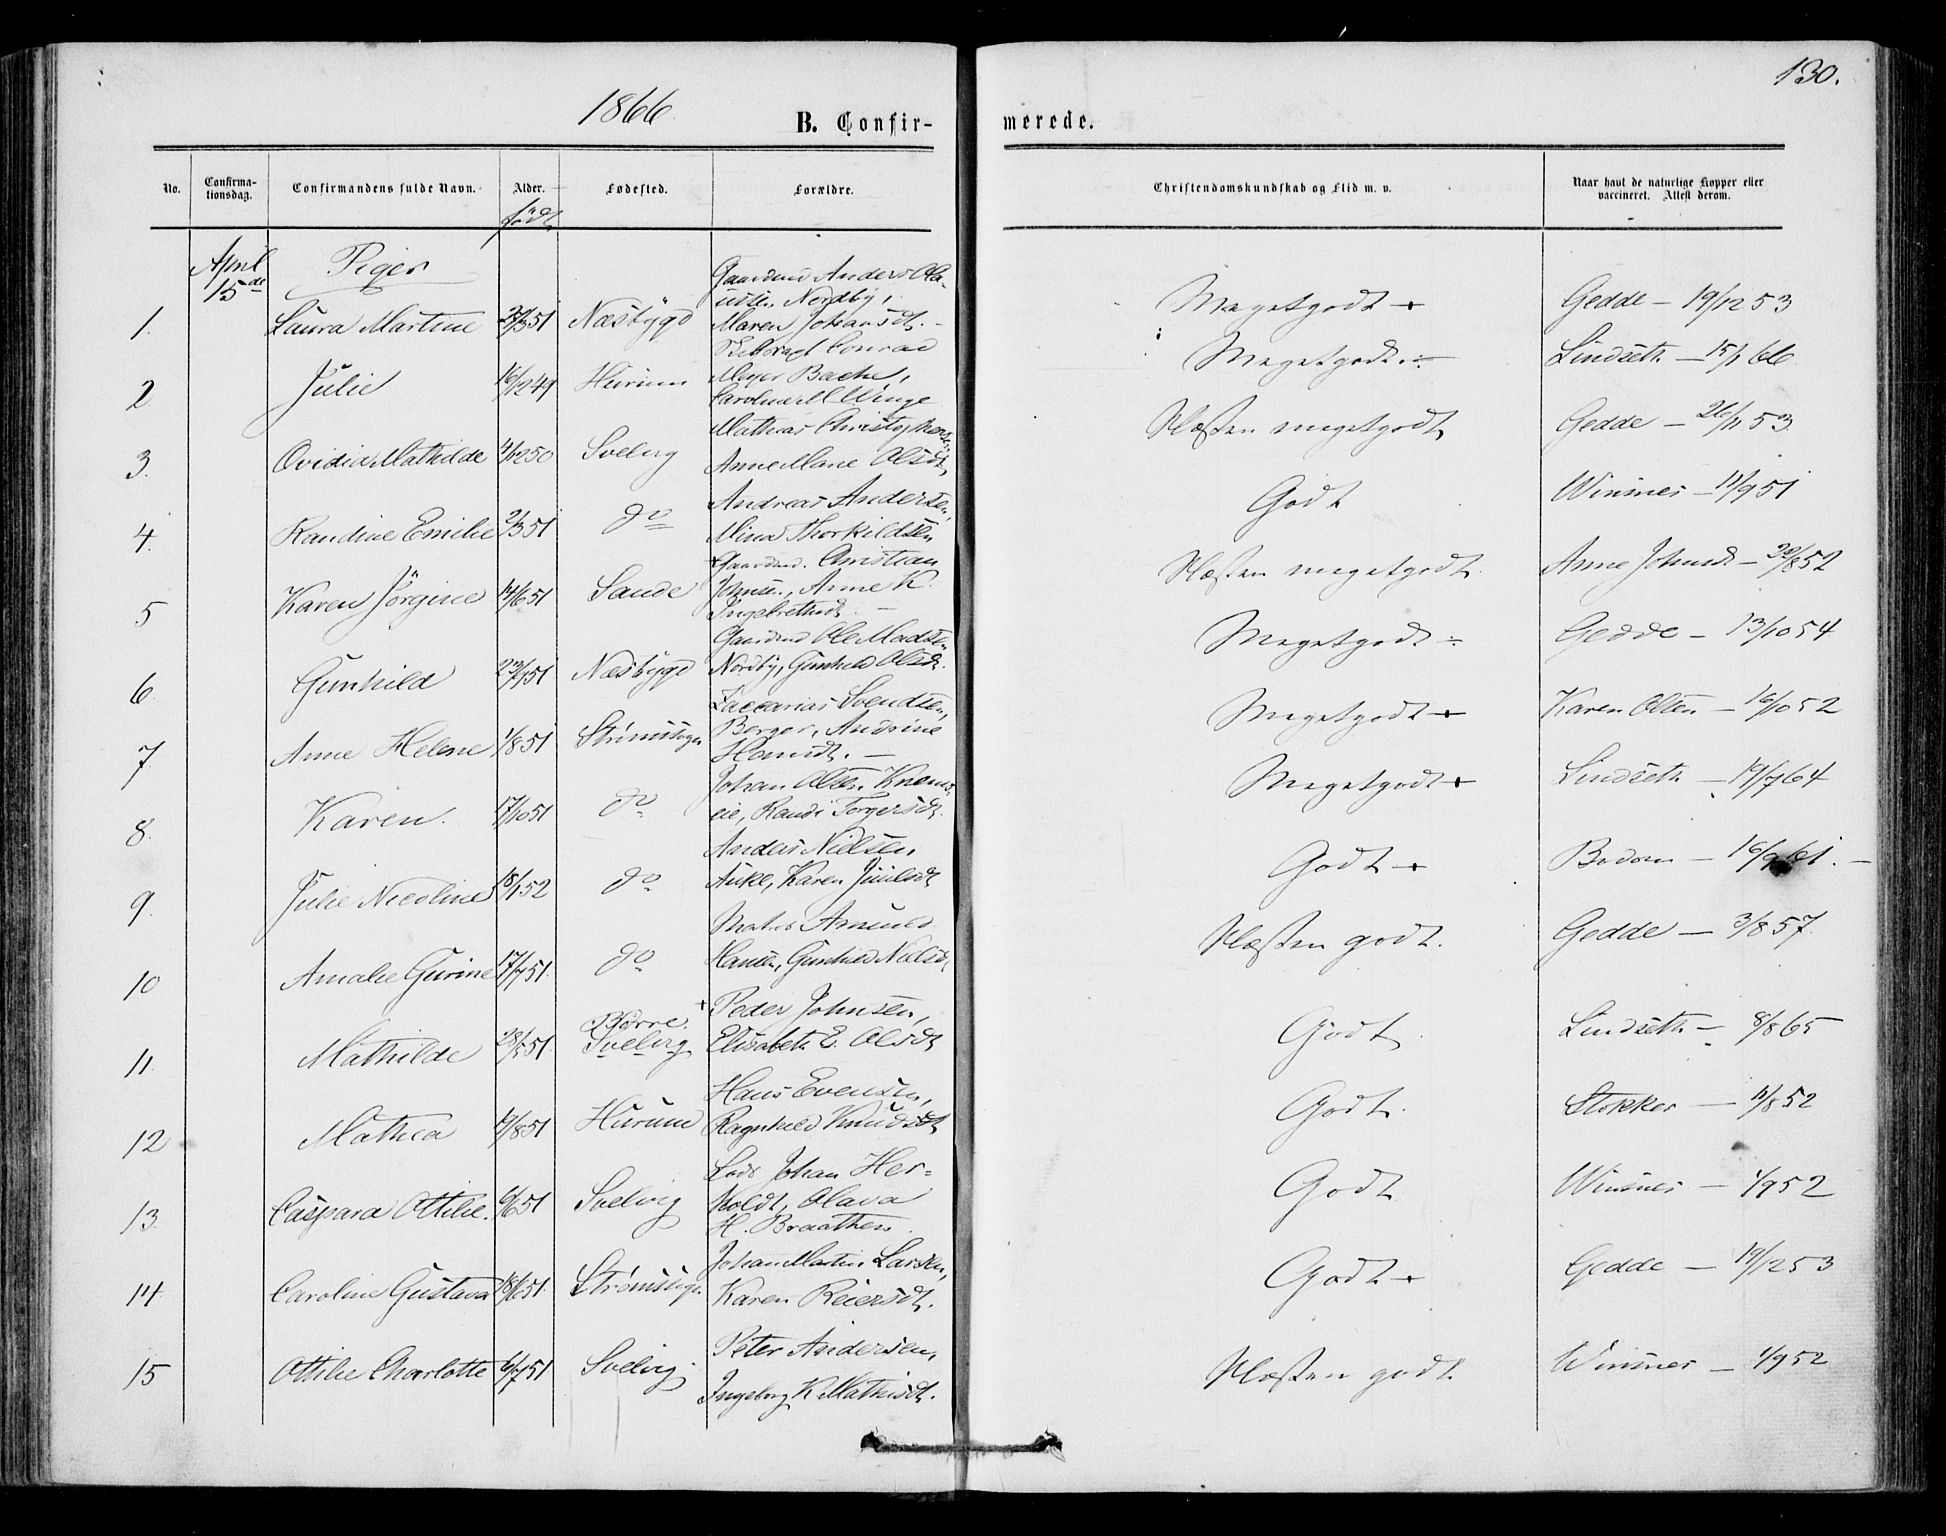 1866
130.
B. Confir-
merede.
No.
Confirma-
tionsdag.
Confirmandens fulde Navn.
Alder.
født
Fødested.
Forældre.
Christendomskundskab og Flid m. v.
Naar havt de naturlige Kopper eller
vaccineret. Attest derom.
April
15de
Piger
Gaardmd Anders Ola-
ussen Nordby,
1. Laura Martine 27/3 51 Næsbygd Maren Johansdt. Megetgodt + Gedde - 19/12 53
2 Julie 16/12 49 Hurum Conrad
Meyer Bache,
Caroline M Winge Megetgodt ÷ Lindseth - 15/1 66
3. Ovidia Mathilde 4/12 50 Svelvig Mathias Christophersen
Anne Marie Olsdt. Næsten megetgodt Gedde - 26/11 53
4. Randine Emilie 2/3 51 do Andreas Andersen,
Mina Thorkildsen Godt Winsnes - 11/9 51
5 Karen Jörgine 14/6 51 Sande Gaardmd. Christian
Johnsen, Anne K.
Ingebretsdt. Næsten megetgodt Anne Johnsd - 22/8 52
6. Gunhild 23/1 51 Næsbygd Gaardmd Ole Madsen
Nordby, Gunhild Olsdt. Megetgodt ÷ Gedde - 13/10 54
7. Anne Helene 1/8 51 Zaccarias Svendsen,
Berger, Andrine
Hansdt. Megetgodt + Karen Olsen - 16/10 52
8. Karen. 17/10 51 do Johan Olsen
eie, Randi Torgersdt. Megetgodt + Lindseth - 19/7 64
9. Julie Nicoline 18/1 52 do Anders Nielsen,
Karen Juulsdt Godt + Bodom - 16/9 61.
10 Amalie Gurine 17/7 51. do Matros Amund
Hansen, Gunhild Nielsdt Næsten godt. Gedde - 3/8 57.
11. Mathilde 28/5 51 Borre.
Svelvig + Peder Johnsen,
Elisabeth E. Olsdt Godt Lindseth - 8/8 65
12 Mathea 19/8 51 Hurum Hans Evensen,
Ragnhild Knudsdt Godt. Stokker - 11/8 52
13. Caspara Ottilie. 6/6 51 Svelvig Lods Johan Her-
holdt, Olava
H. Braathen Godt Winsnes - 1/9 52
14. Caroline Gustava 18/6 51 Johan Martin Larsen,
Karen Reiersdt. Godt + Gedde - 19/12 53
15 Ottilie Charlotte 6/7 51 Svelvig Peter Andersen,
Ingeborg K Mathisdt. Næsten godt. Winsnes - 1/9 52